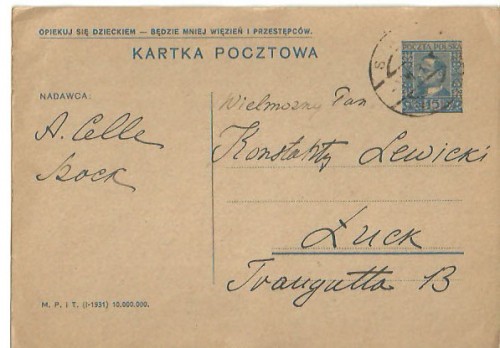 OPIEKUJ SIĘ DZIECKIEM — BĘDZIE MNIEJ WIĘZIEŃ I PRZESTĘPCÓW.
KARTKA POCZTOWA
POCZTA POLSKA
15
NADAWCA:
A. Celle
Wielmożny Pan
Konstanty Lewicki
Łuck
Traugutta 13
M. P. i T. (I-1931) 10.000.000.